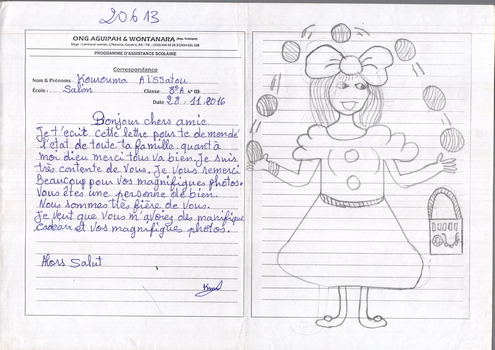 20613
ONG AGUIPAH & WONTANARA
PROGRAMME D'ASSISTANCE SCOLAIRE
Correspondance
Nom & Prénoms : Kourouma Aïssatou
École : Salim Classe : 8e A n° ID
Date 28.11.2016
Bonjour chers amie
Je t'ecrit cette lettre pour te demande
l'état de toute ta famille. quant à
moi dieu merci tous va bien. Je suis
très contente de vous. Je vous remerci
Beaucoup pour vos magnifiques photos.
Vous êtes une personne de bien.
Nous sommes très fière de vous.
Je veut que vous m'avoiez des manifique
cadeau et vos magnifiques photos.
Alors Salut